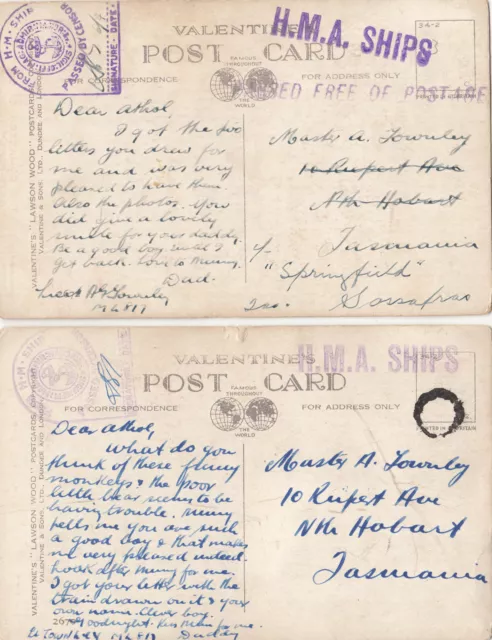 FROM H·M·SHIP
PASSED BY CENSOR
SIGNATURE - DATE
VALENTINE'S
POST CARD
H.M.A. SHIPS
34-2
FAMOUS
THROUGHOUT
THE
WORLD
FOR CORRESPONDENCE
FOR ADDRESS ONLY
FREE OF POSTAGE
VALENTINE'S "LAWSON WOOD" POSTCARDS
VALENTINE & SONS, LTD., DUNDEE AND LONDON
Dear Athol,
I got the two
letters you drew for
me and was very
pleased to have them.
Also the photos. You
did give a lovely
smile for your daddy.
Be a good boy until I
get back. Love to Mummy.
Dad.
Townley
Master A. Townley
10 Rupert Ave
Nth Hobart
Tasmania
"Springfield"
Sassafras
H·M·SHIP
VALENTINE'S
POST CARD
H.M.A. SHIPS
FAMOUS
THROUGHOUT
THE
WORLD
FOR CORRESPONDENCE
FOR ADDRESS ONLY
PRINTED IN
VALENTINE'S "LAWSON WOOD" POSTCARDS
VALENTINE & SONS, LTD., DUNDEE AND LONDON
Dear Athol,
What do you
think of these funny
monkeys & the poor
little bear seems to be
having trouble. Mummy
tells me you are such
a good boy & that makes
me very pleased indeed.
Look after Mummy for me.
I got your letter with the
train drawn on it & your
own name. Clever boy.
Goodnight. Kiss Mum for me.
Daddy
Townley
Master A. Townley
10 Rupert Ave
Nth Hobart
Tasmania